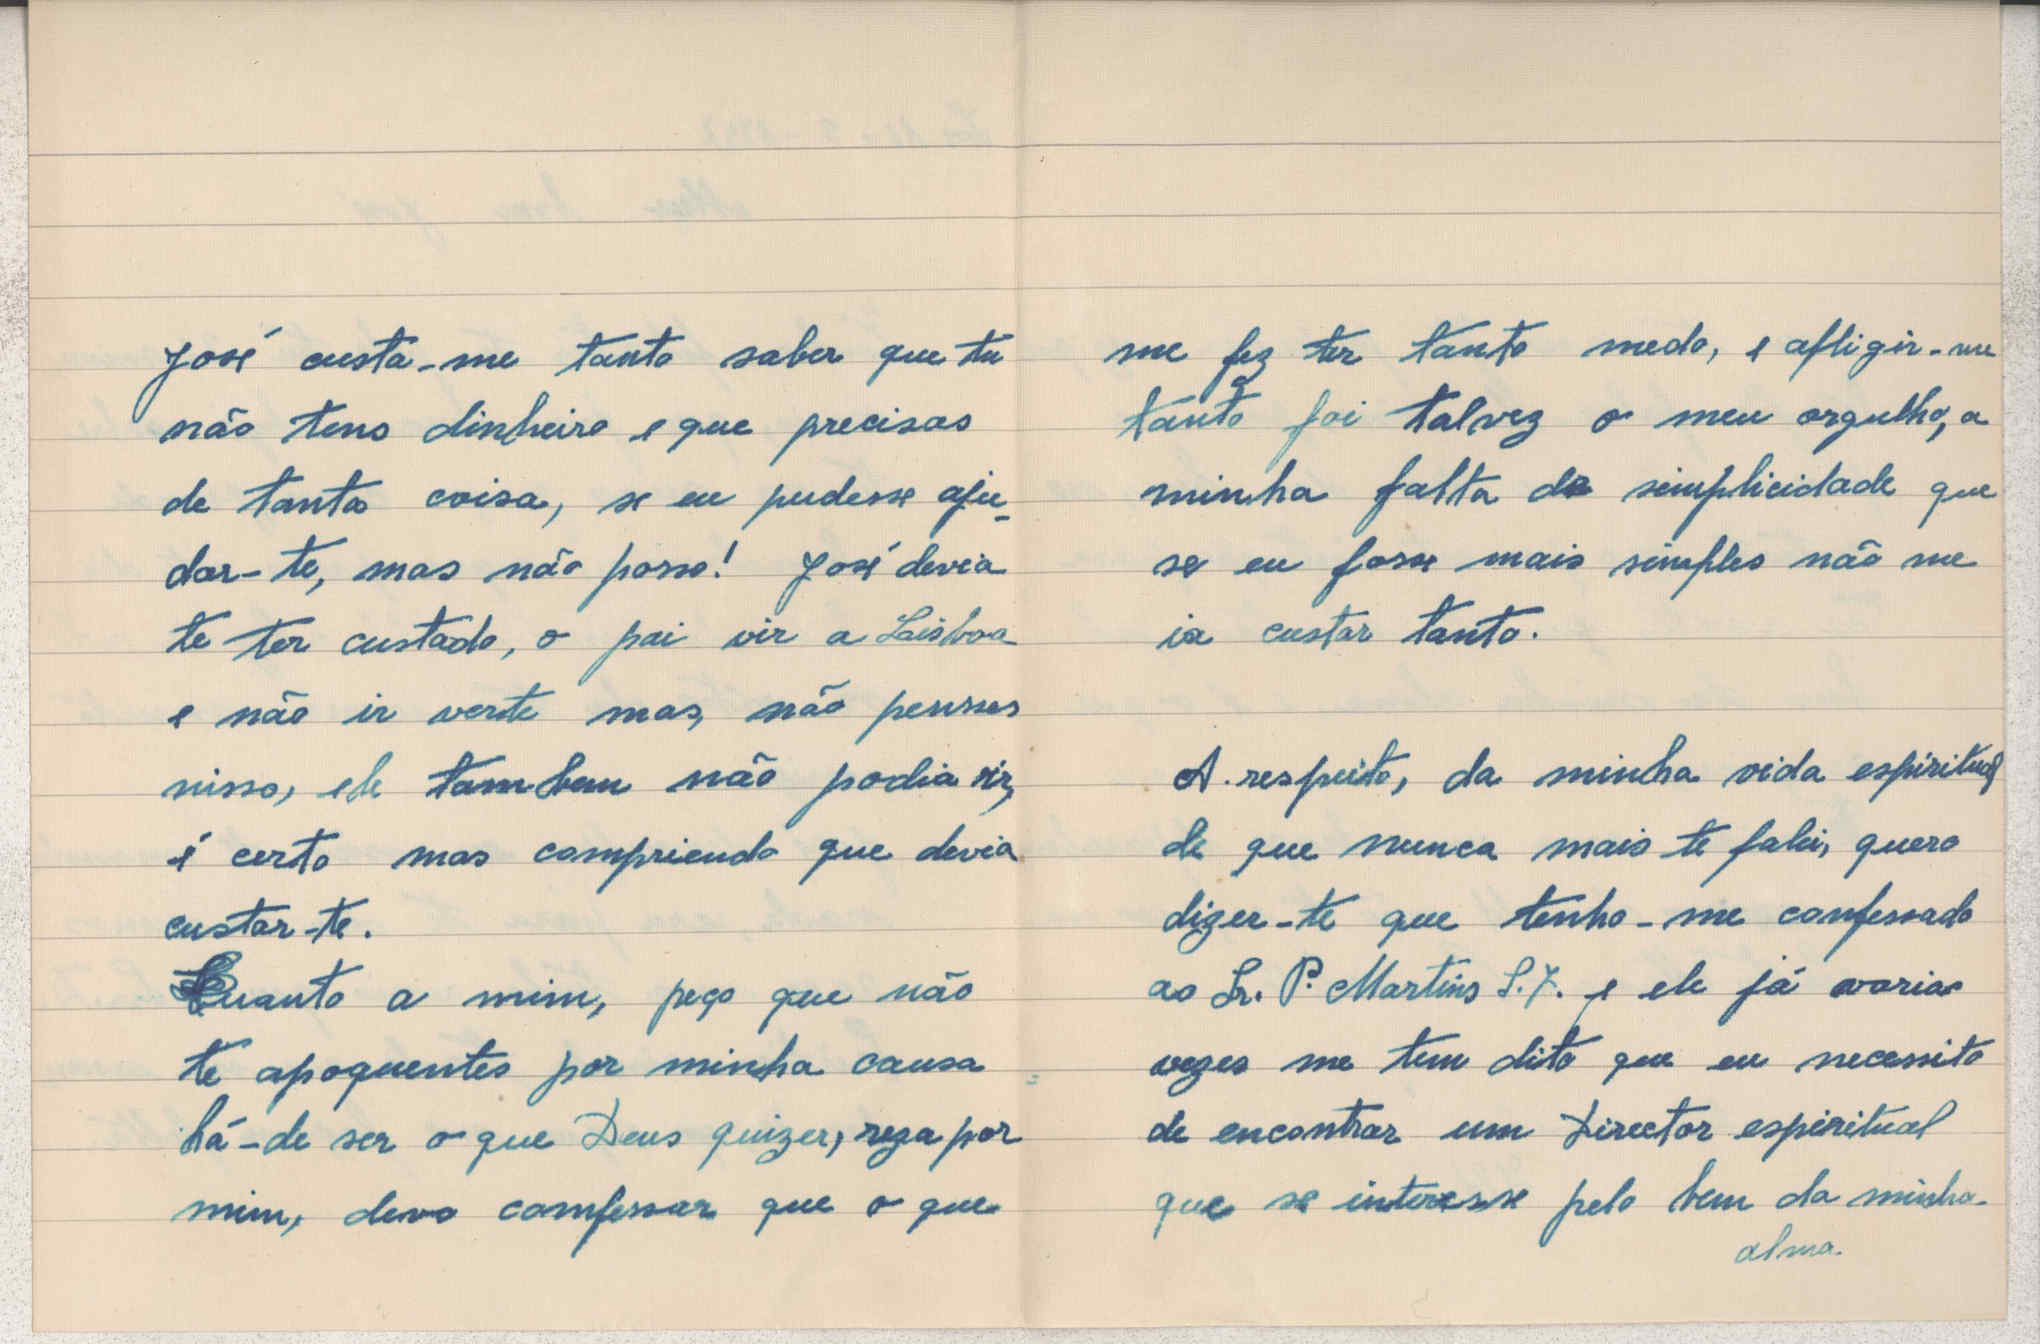 José custa-me tanto saber que tu
não tens dinheiro e que precisas
de tanta coisa, se eu pudesse aju-
dar-te, mas não posso! José devia
te ter custado, o pai vir a Lisboa
e não ir verte mas, não penses
nisso, ele tambem não podia ir,
é certo mas compriendo que devia
custar-te.
Quanto a mim, peço que não
te apoquentes por minha causa
há-de ser o que Deus quizer, reza por
mim, devo comfessar que o que
me fez ter tanto medo, e afligir-me
tanto foi talvez o meu orgulho, a
minha falta de simplicidade que
se eu fosse mais simples não me
ia custar tanto.
A respeito, da minha vida espiritual
de que nunca mais te falei, quero
dizer-te que tenho-me confessado
ao Sr. P. Martins S.J. e ele já varias
vezes me tem dito que eu necessito
de encontrar um Director espiritual
que se interesse pelo bem da minha
alma.